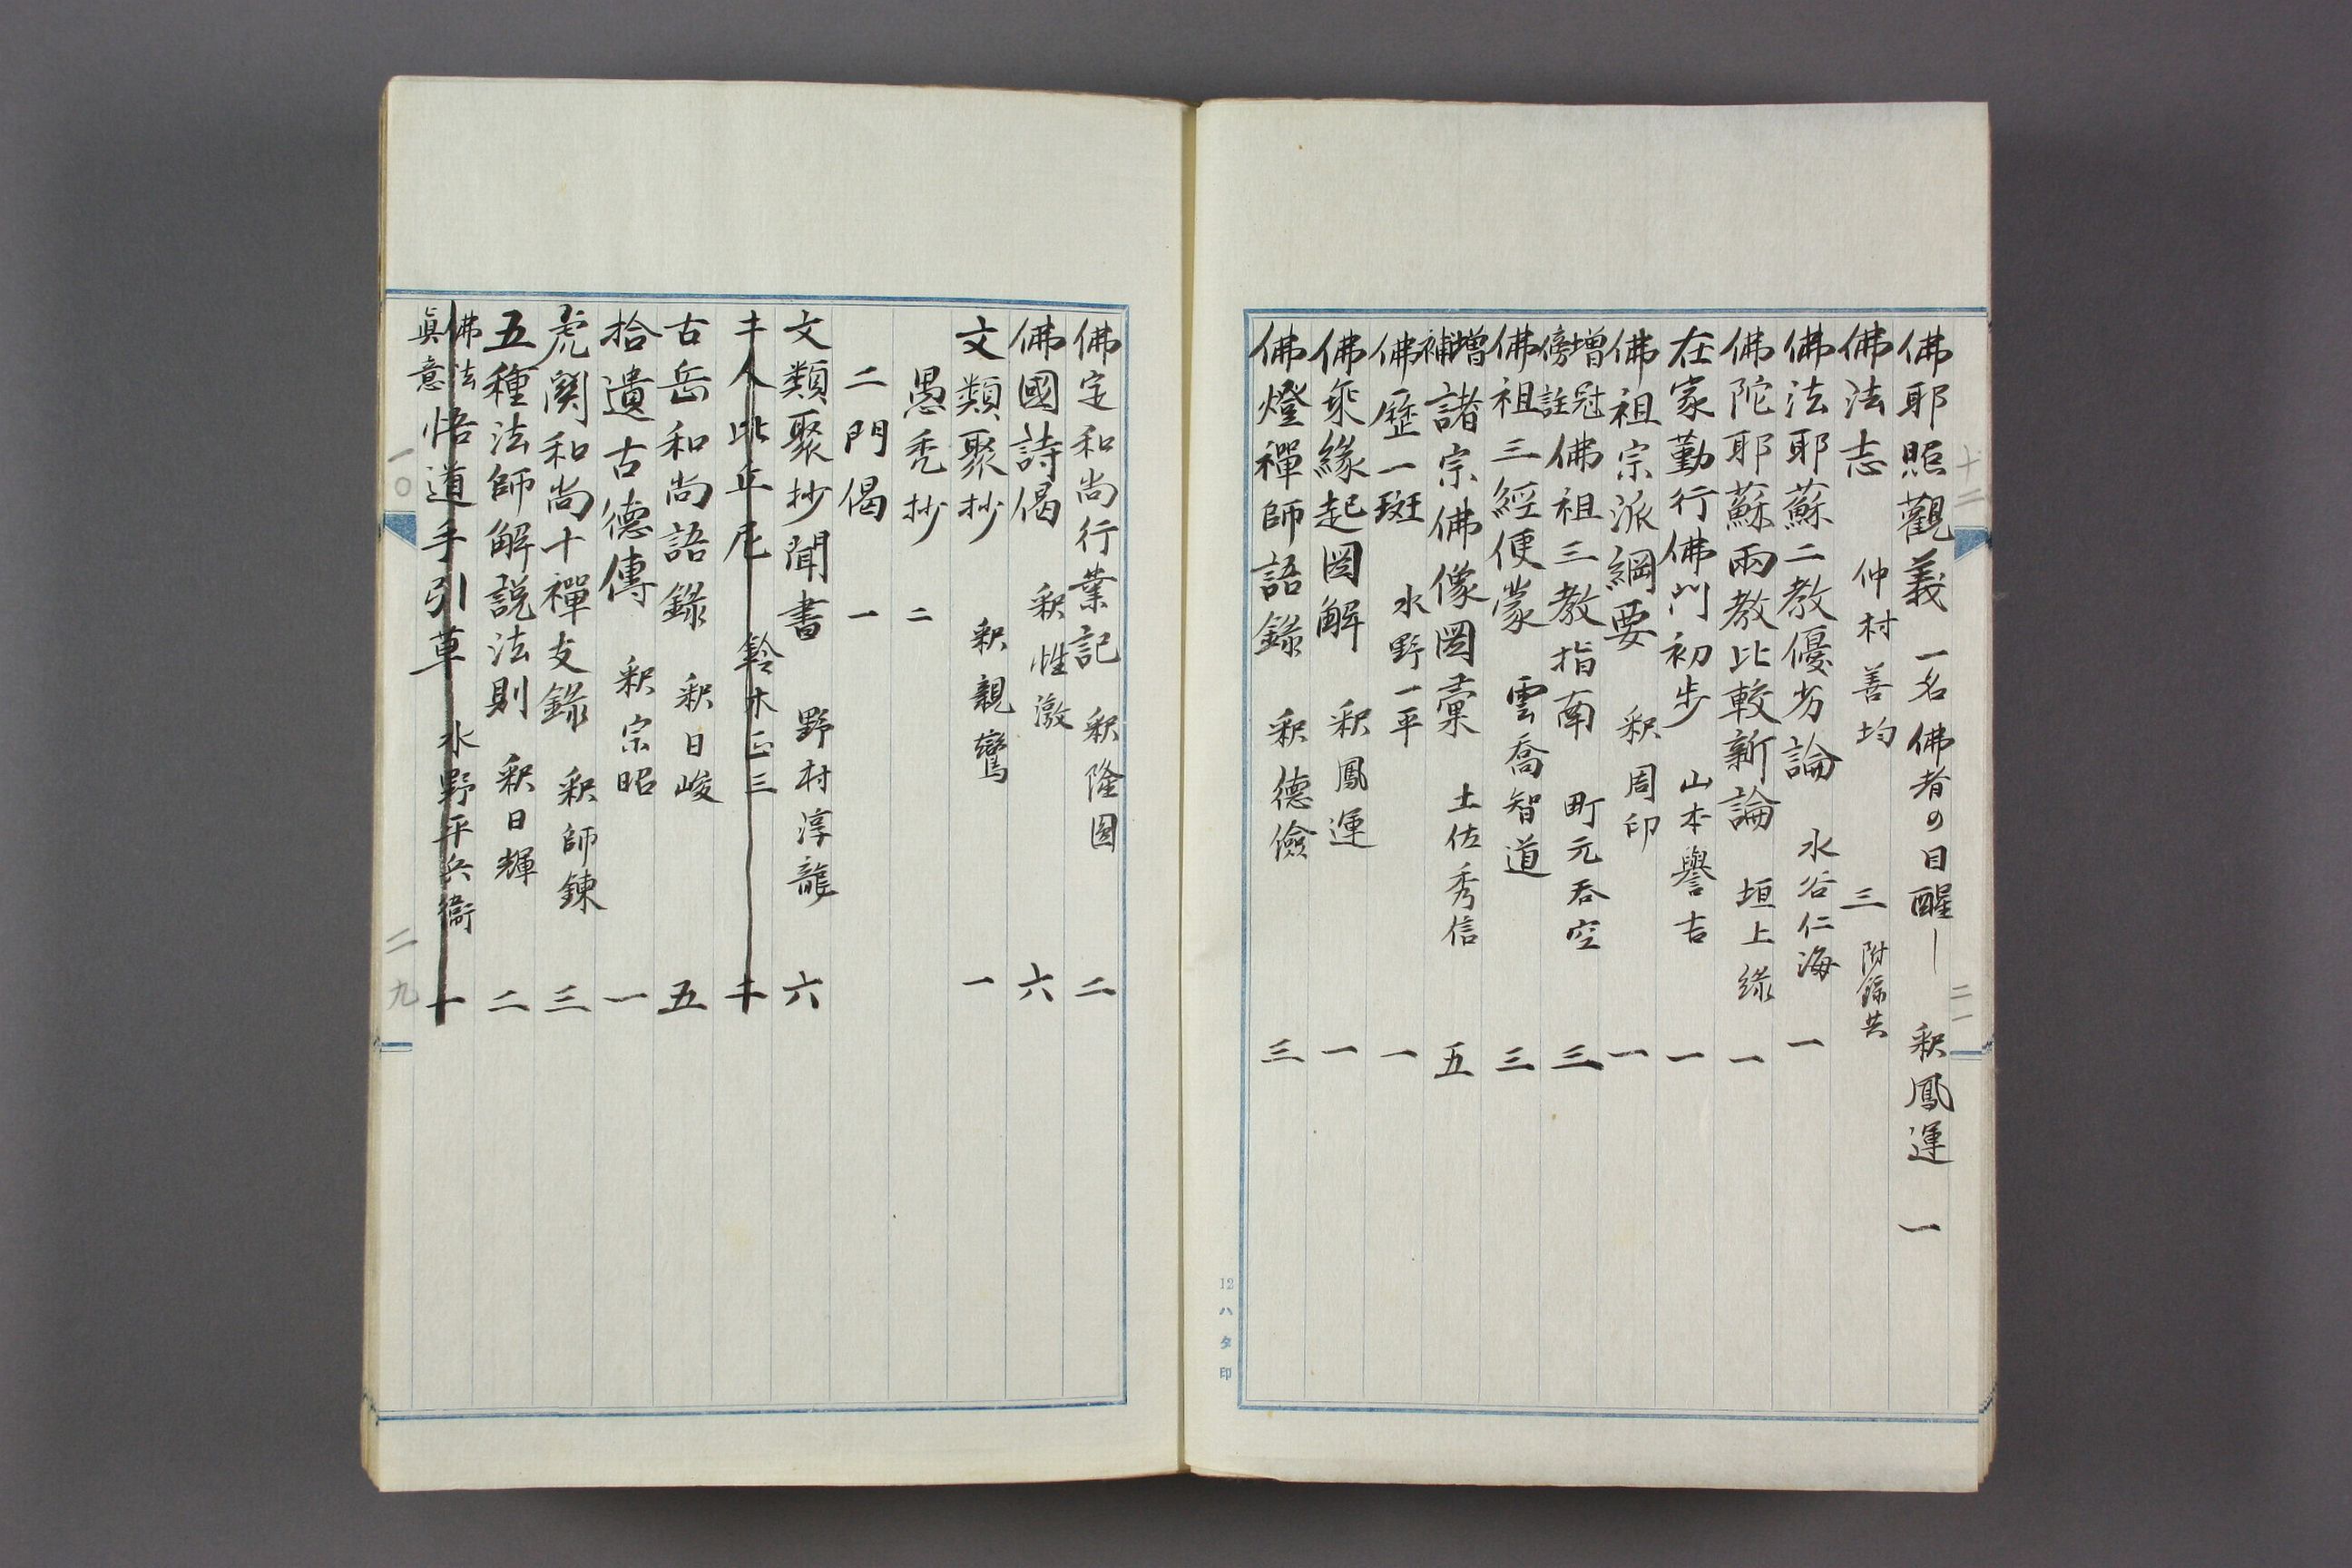 十二
二一
佛耶照觀義 一名佛者の目醒― 釈鳳運 一
佛法志 仲村善均 三 附錄共
佛法耶蘇二教優劣論 水谷仁海 一
佛陀耶蘇兩教比較新論 垣上緑 一
在家勤行佛門初步 山本譽吉 一
佛祖宗派綱要 釈周印 一
增冠傍註佛祖三教指南 町元呑空 三
佛祖三經便蒙 雲喬智道 三
增補諸宗佛像圖彙 土佐秀信 五
佛歷一斑 水野一平 一
佛乘緣起圖解 釈鳳運 一
佛燈禪師語錄 釈德儉 三
12ハタ印
佛定和尚行業記 釈隆圓 二
佛國詩偈 釈性激 六
文類聚抄 釈親鸞 一
愚禿抄 二
二門偈 一
文類聚抄聞書 野村淳龍 六
人比丘尼 鈴木正三
古岳和尚語錄 釈日峻 五
拾遺古德傳 釈宗昭 一
虎関和尚十禪支錄 釈師鍊 三
五種法師解說法則 釈日輝 二
佛法眞意悟道手引草 水野平兵衞
一〇
二九